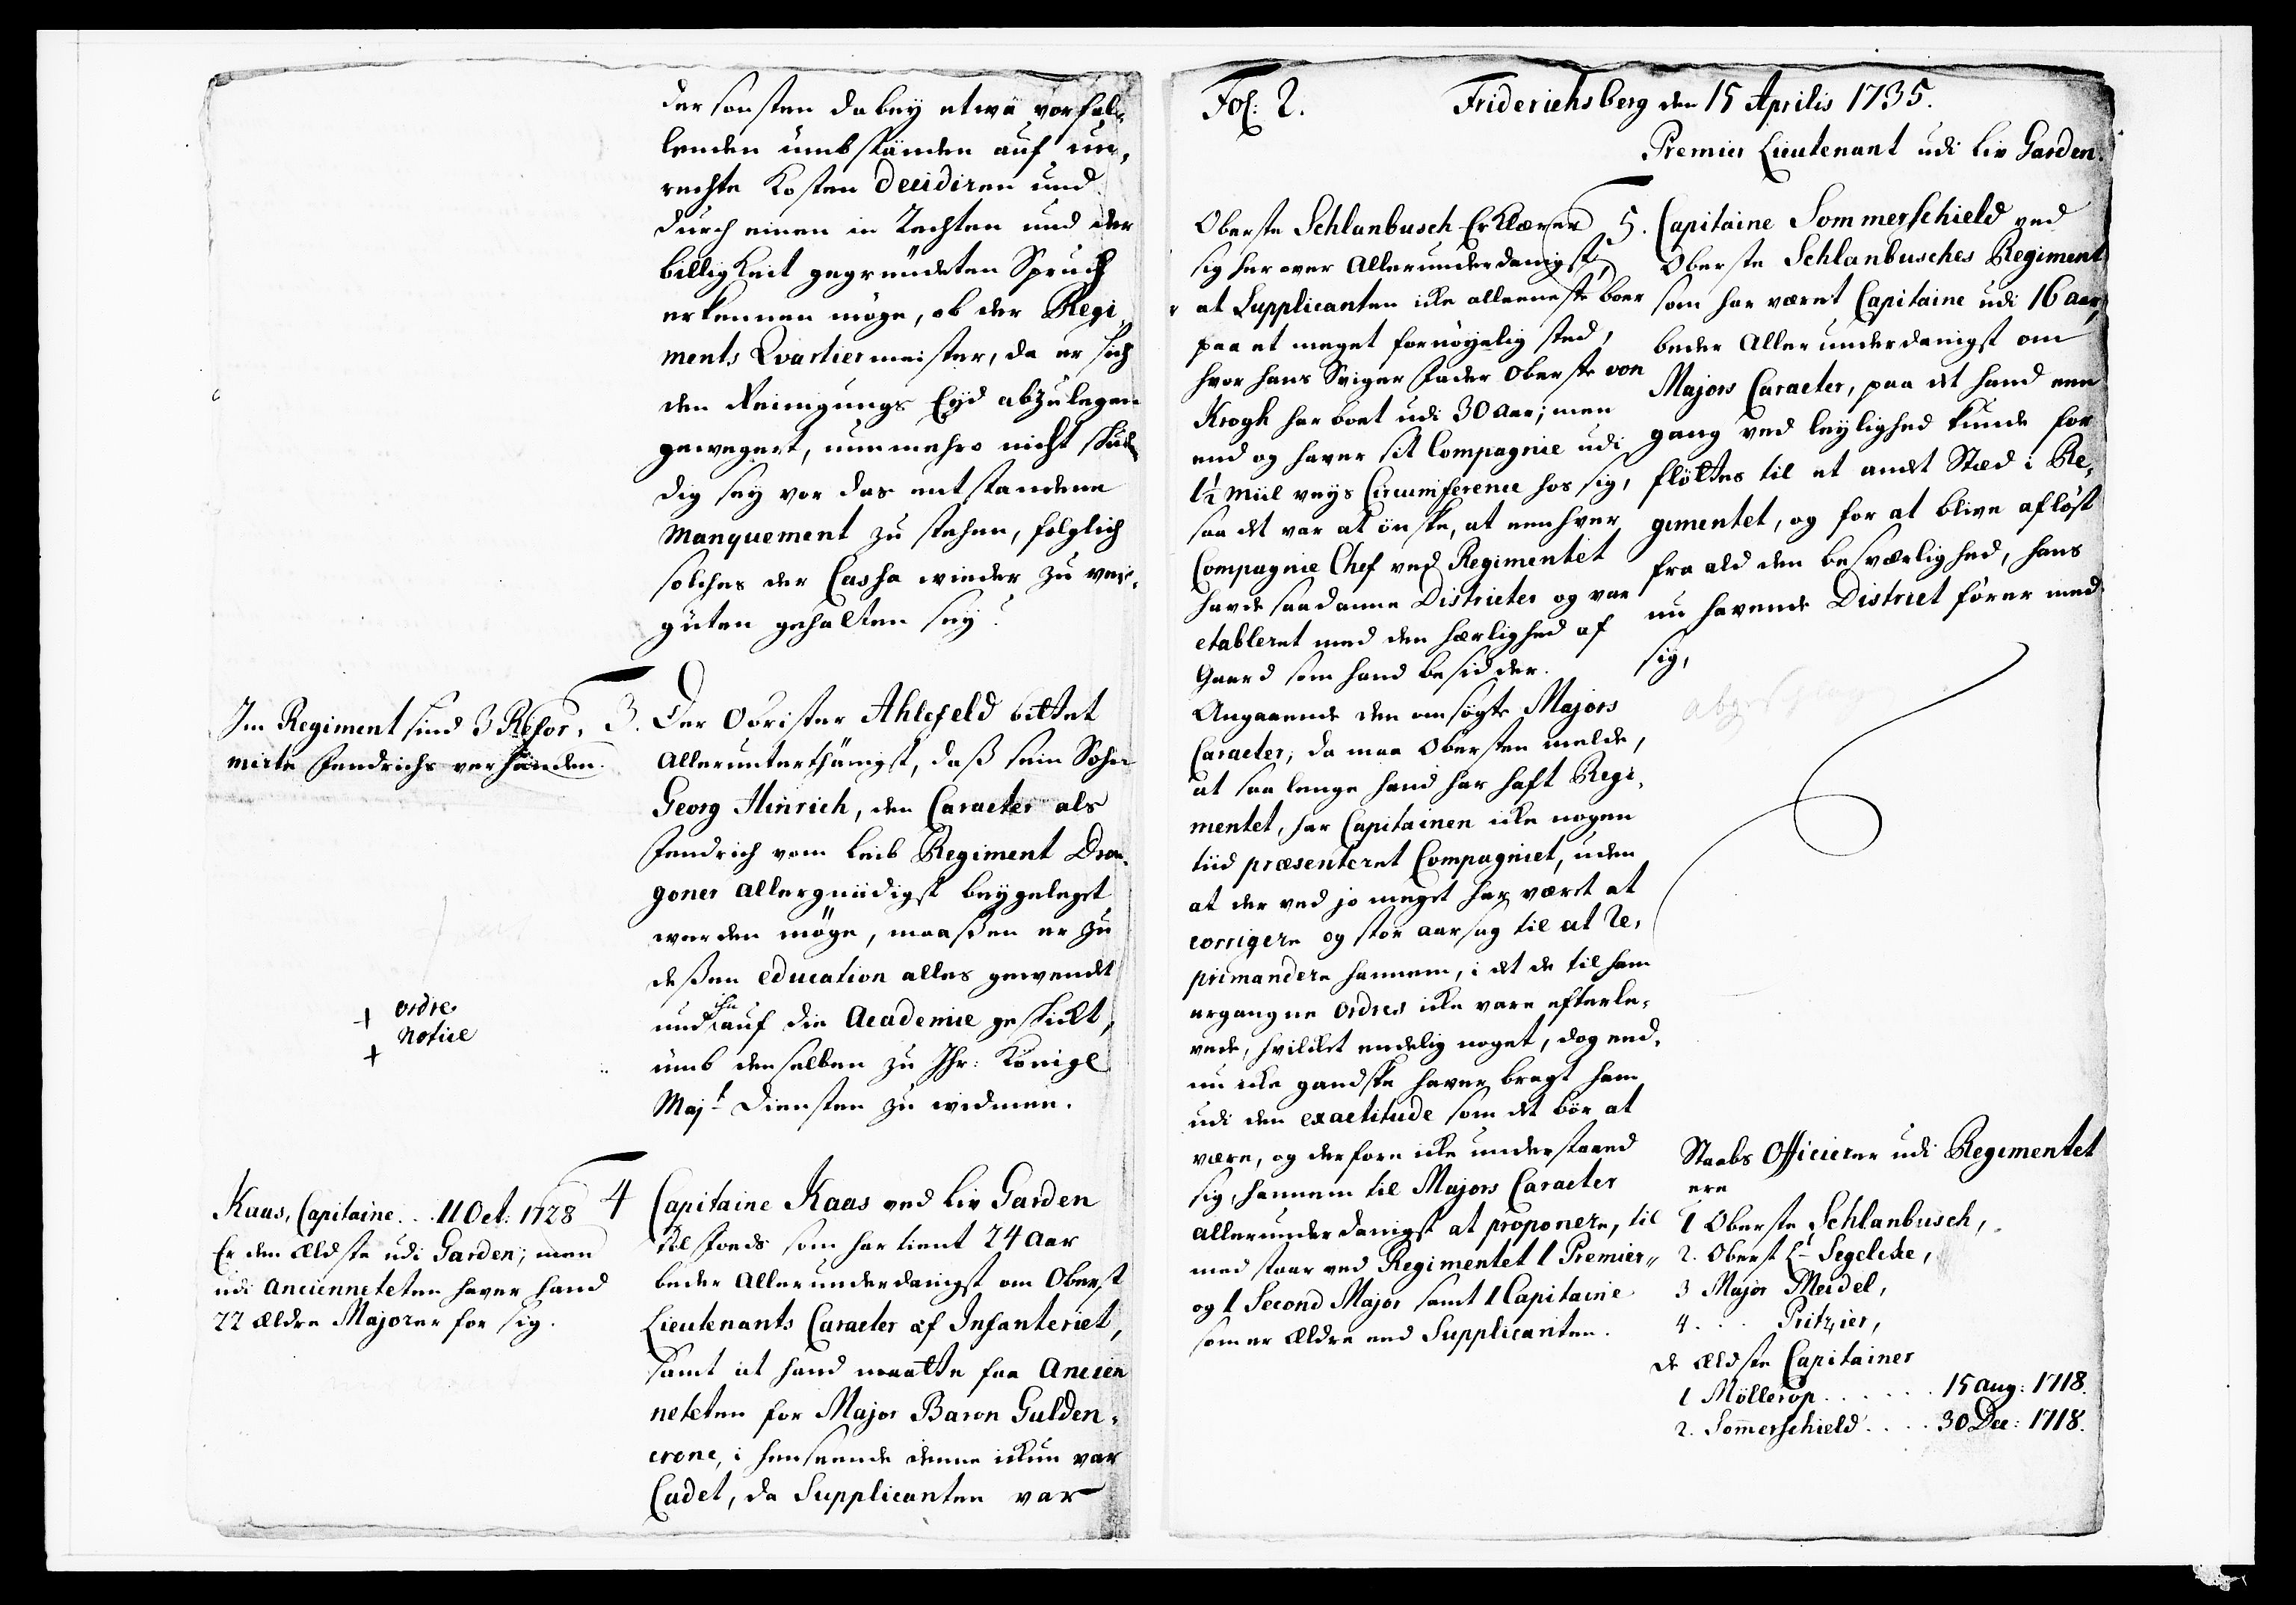 der sonsten dabey etwa vorfal-
lenden umbständen auf un-
rechte Kosten decidiren und
durch einen in Rechten und der
billigkeit gegründeten Spruch
erkennen möge, ob der Regi-
ments Qvartiermeister, da er sich
den Reinigungs Eyd abzulegen
gewegert, nunmehro nicht schul-
dig sey vor das entstandene
Manquement zu stehen, folglich
solches der Cassa wieder zu ver-
güten gehalten sey?
Im Regiment sind 3 Refor-
mirte Fendrichs verhanden.
3. Der Obrister Ahlefeld bittet
Allerunterthänigst, daß sein Sohn
Georg Hinrich, den Caracter als
Fendrich vom Leib Regiment Dra-
goner allergnädigst beygeleget
werden möge, maaßen er zu
deßen education alles gewendt
und ihn auf die Academie geschickt,
umb denselben zu Ihr: Königl
Majt Diensten zu widmen.
+ ordre
notice
+
Kaas, Capitaine . . . 11 Oct: 1728
Er den Ældste udi Garden; men
udi Ancienneteten haver hand
22 Ældre Majorer for sig.
4 Capitaine Kaas ved Liv Garden
til foeds som har tient 24 Aar
beder Allerunderdanigst om Oberst
Lieutenants Caracter af Infanteriet,
samt at hand maatte faa Ancien
neteten for Major Baron Gulden-
crone, i henseende denne ickun var
Cadet, da Supplicanten var
Fol: 2.
Friderichsberg den 15 Aprilis 1735.
Premier Lieutenant udi Liv Garden.
Oberste Schlanbusch Erklærer
sig her over Allerunderdanigst,
at Supplicanten icke alleeneste boer
paa et meget fornöyelig sted,
hvor hans Sviger Fader Oberste von
Krogh har boet udi 30 Aar; men
end og haver sit Compagnie udi
1½ Miil veys Circumference hos sig,
saa det var at önske, at eenhver
Compagnie Chef ved Regimentet
havde saadanne Districter og var
etableret med den herlighed af
Gaard som hand besidder.
Angaaende den ansögte Majors
Caracter, da maa Obersten melde,
at saa lenge hand har haft Regi-
mentet, har Capitainen icke nogen
tiid præsenteret Compagniet, uden
at der ved jo meget har været at
corrigere og stor aarsag til at Re-
primandere hannem, i det de til ham
ergangne Ordres icke vare efterle-
vede, hvilcket endelig noget, dog end-
nu icke gandske haver bragt ham
udi den exactitude som det bör at
være, og derfore icke understaaed
sig, hannem til Majors Caracter
allerunderdanigst at proponere, til
med staar ved Regimentet 1 Premier-
og 1 Second Major samt 1 Capitaine
som er Ældre end Supplicanten.
5. Capitaine Sommerschield ved
Oberste Schlanbusches Regiment
som har været Capitaine udi 16 Aar,
beder Allerunderdanigst om
Majors Caracter, paa det hand een
gang ved leylighed kunde for
flöttes til et andet Stæd i Re-
gimentet, og for at blive aflöst
fra ald den besværlighed, hans
nu havende District förer med
sig,
abgeschlagen
Staabs Officierer udi Regimentet
ere
1 Oberste Schlanbusch,
2. Oberst Lt Segelcke,
3 Major Meidel,
4. . . Pritzier,
de Ældste Capitainer
1 Möllerop . . . . . . 15 Aug: 1718.
2. Somerschield . . . . 30 Dec: 1718.